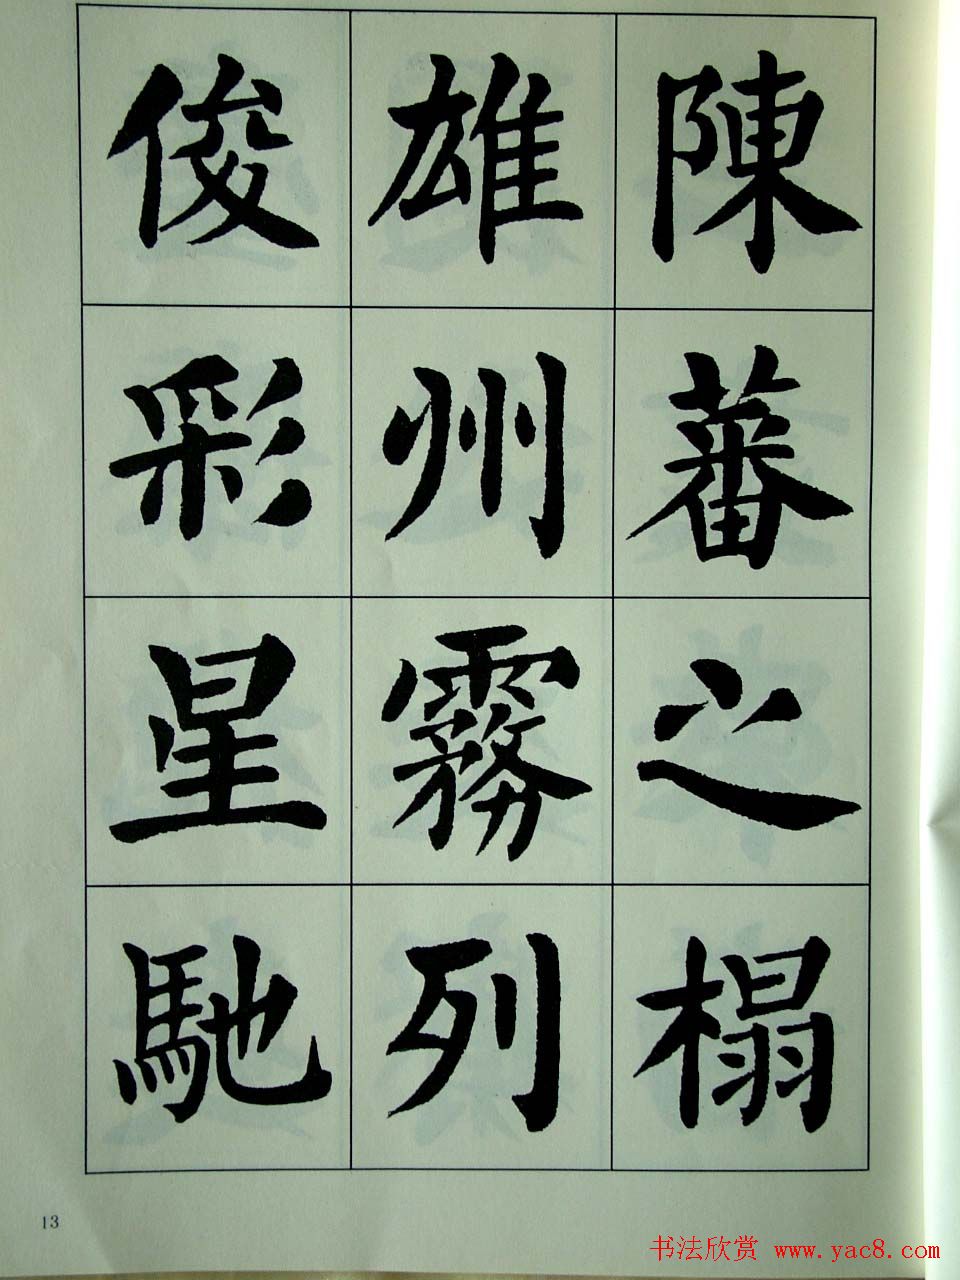 陳蕃之榻
雄州霧列
俊彩星馳
13
书法欣赏 www.yac8.com